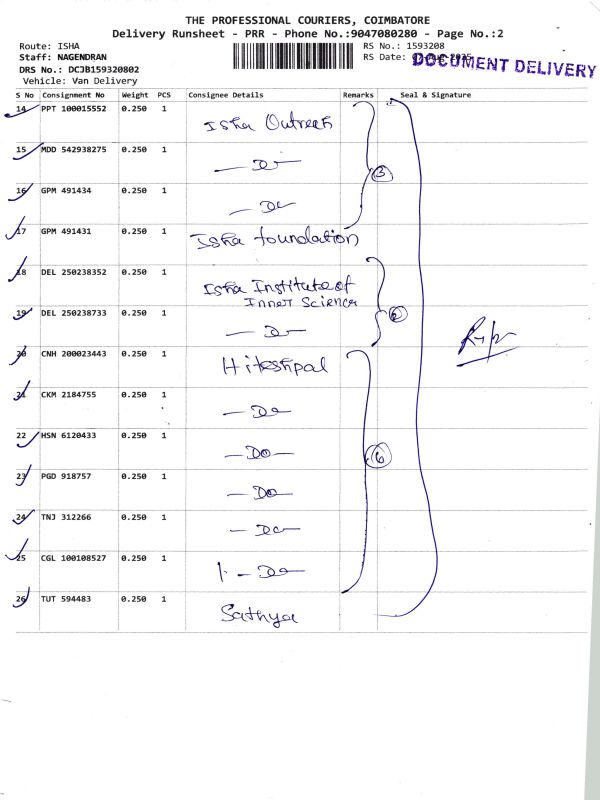 THE PROFESSIONAL COURIERS, COIMBATORE
Delivery Runsheet - PRR - Phone No.:9047080280 - Page No.:2
Route: ISHA
RS No.: 1593208
Staff: NAGENDRAN
RS Date:
DOCUMENT DELIVERY
DRS No.: DCJB159320802
Vehicle: Van Delivery
S No Consignment No Weight PCS Consignee Details Remarks Seal & Signature
14 PPT 100015552 0.250 1 Isha Outreach
15 MDD 542938275 0.250 1 — Do —
16 GPM 491434 0.250 1 — Do —
3
17 GPM 491431 0.250 1 Isha foundation
18 DEL 250238352 0.250 1 Isha Institute of
Inner Science
19 DEL 250238733 0.250 1 — Do —
2
20 CNH 200023443 0.250 1 Hiteshpal
21 CKM 2184755 0.250 1 — Do —
22 HSN 6120433 0.250 1 — Do —
6
23 PGD 918757 0.250 1 — Do —
24 TNJ 312266 0.250 1 — Do —
25 CGL 100108527 0.250 1 — Do —
26 TUT 594483 0.250 1 Sathya